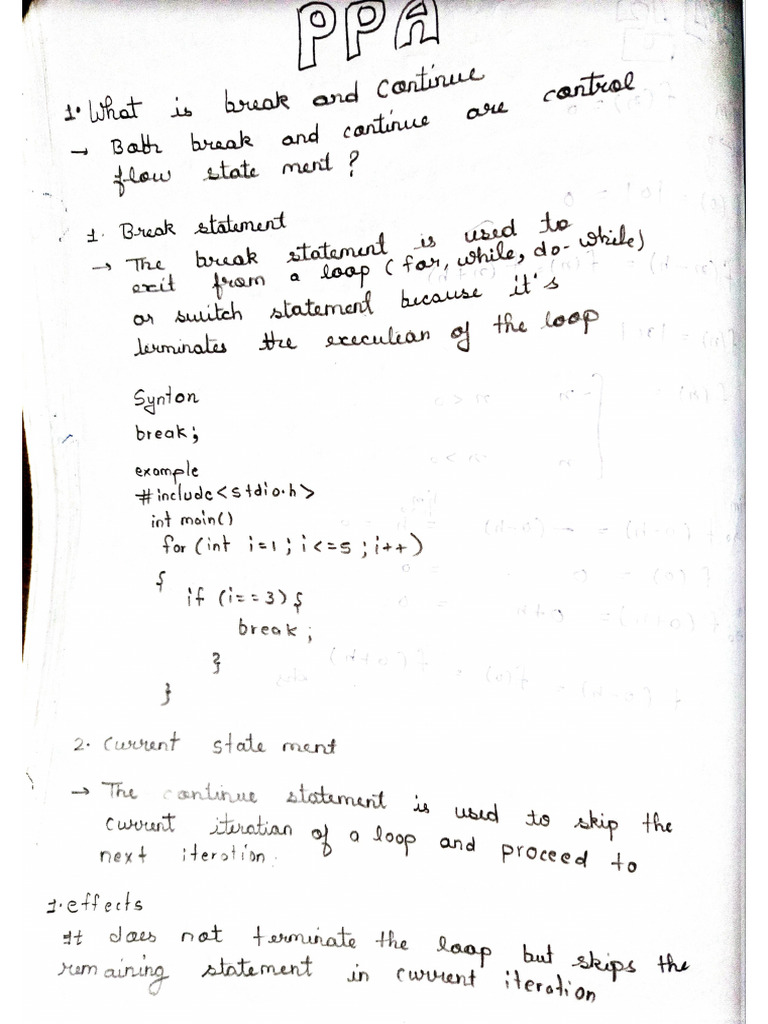 PPA
1. What is break and continue
→ Both break and continue are control
flow state ment ?
1. Break statement
→ The break statement is used to
exit from a loop (for, while, do-while)
or switch statement because it's
terminates the execution of the loop
Synton
break;
example
#include<stdio.h>
int main()
for (int i=1 ; i<=5 ; i++)
{
if (i==3) {
break ;
}
}
2. Current state ment
→ The continue statement is used to skip the
current iteration of a loop and proceed to
next iteration.
1. effects
It does not terminate the loop but skips the
remaining statement in current iteration